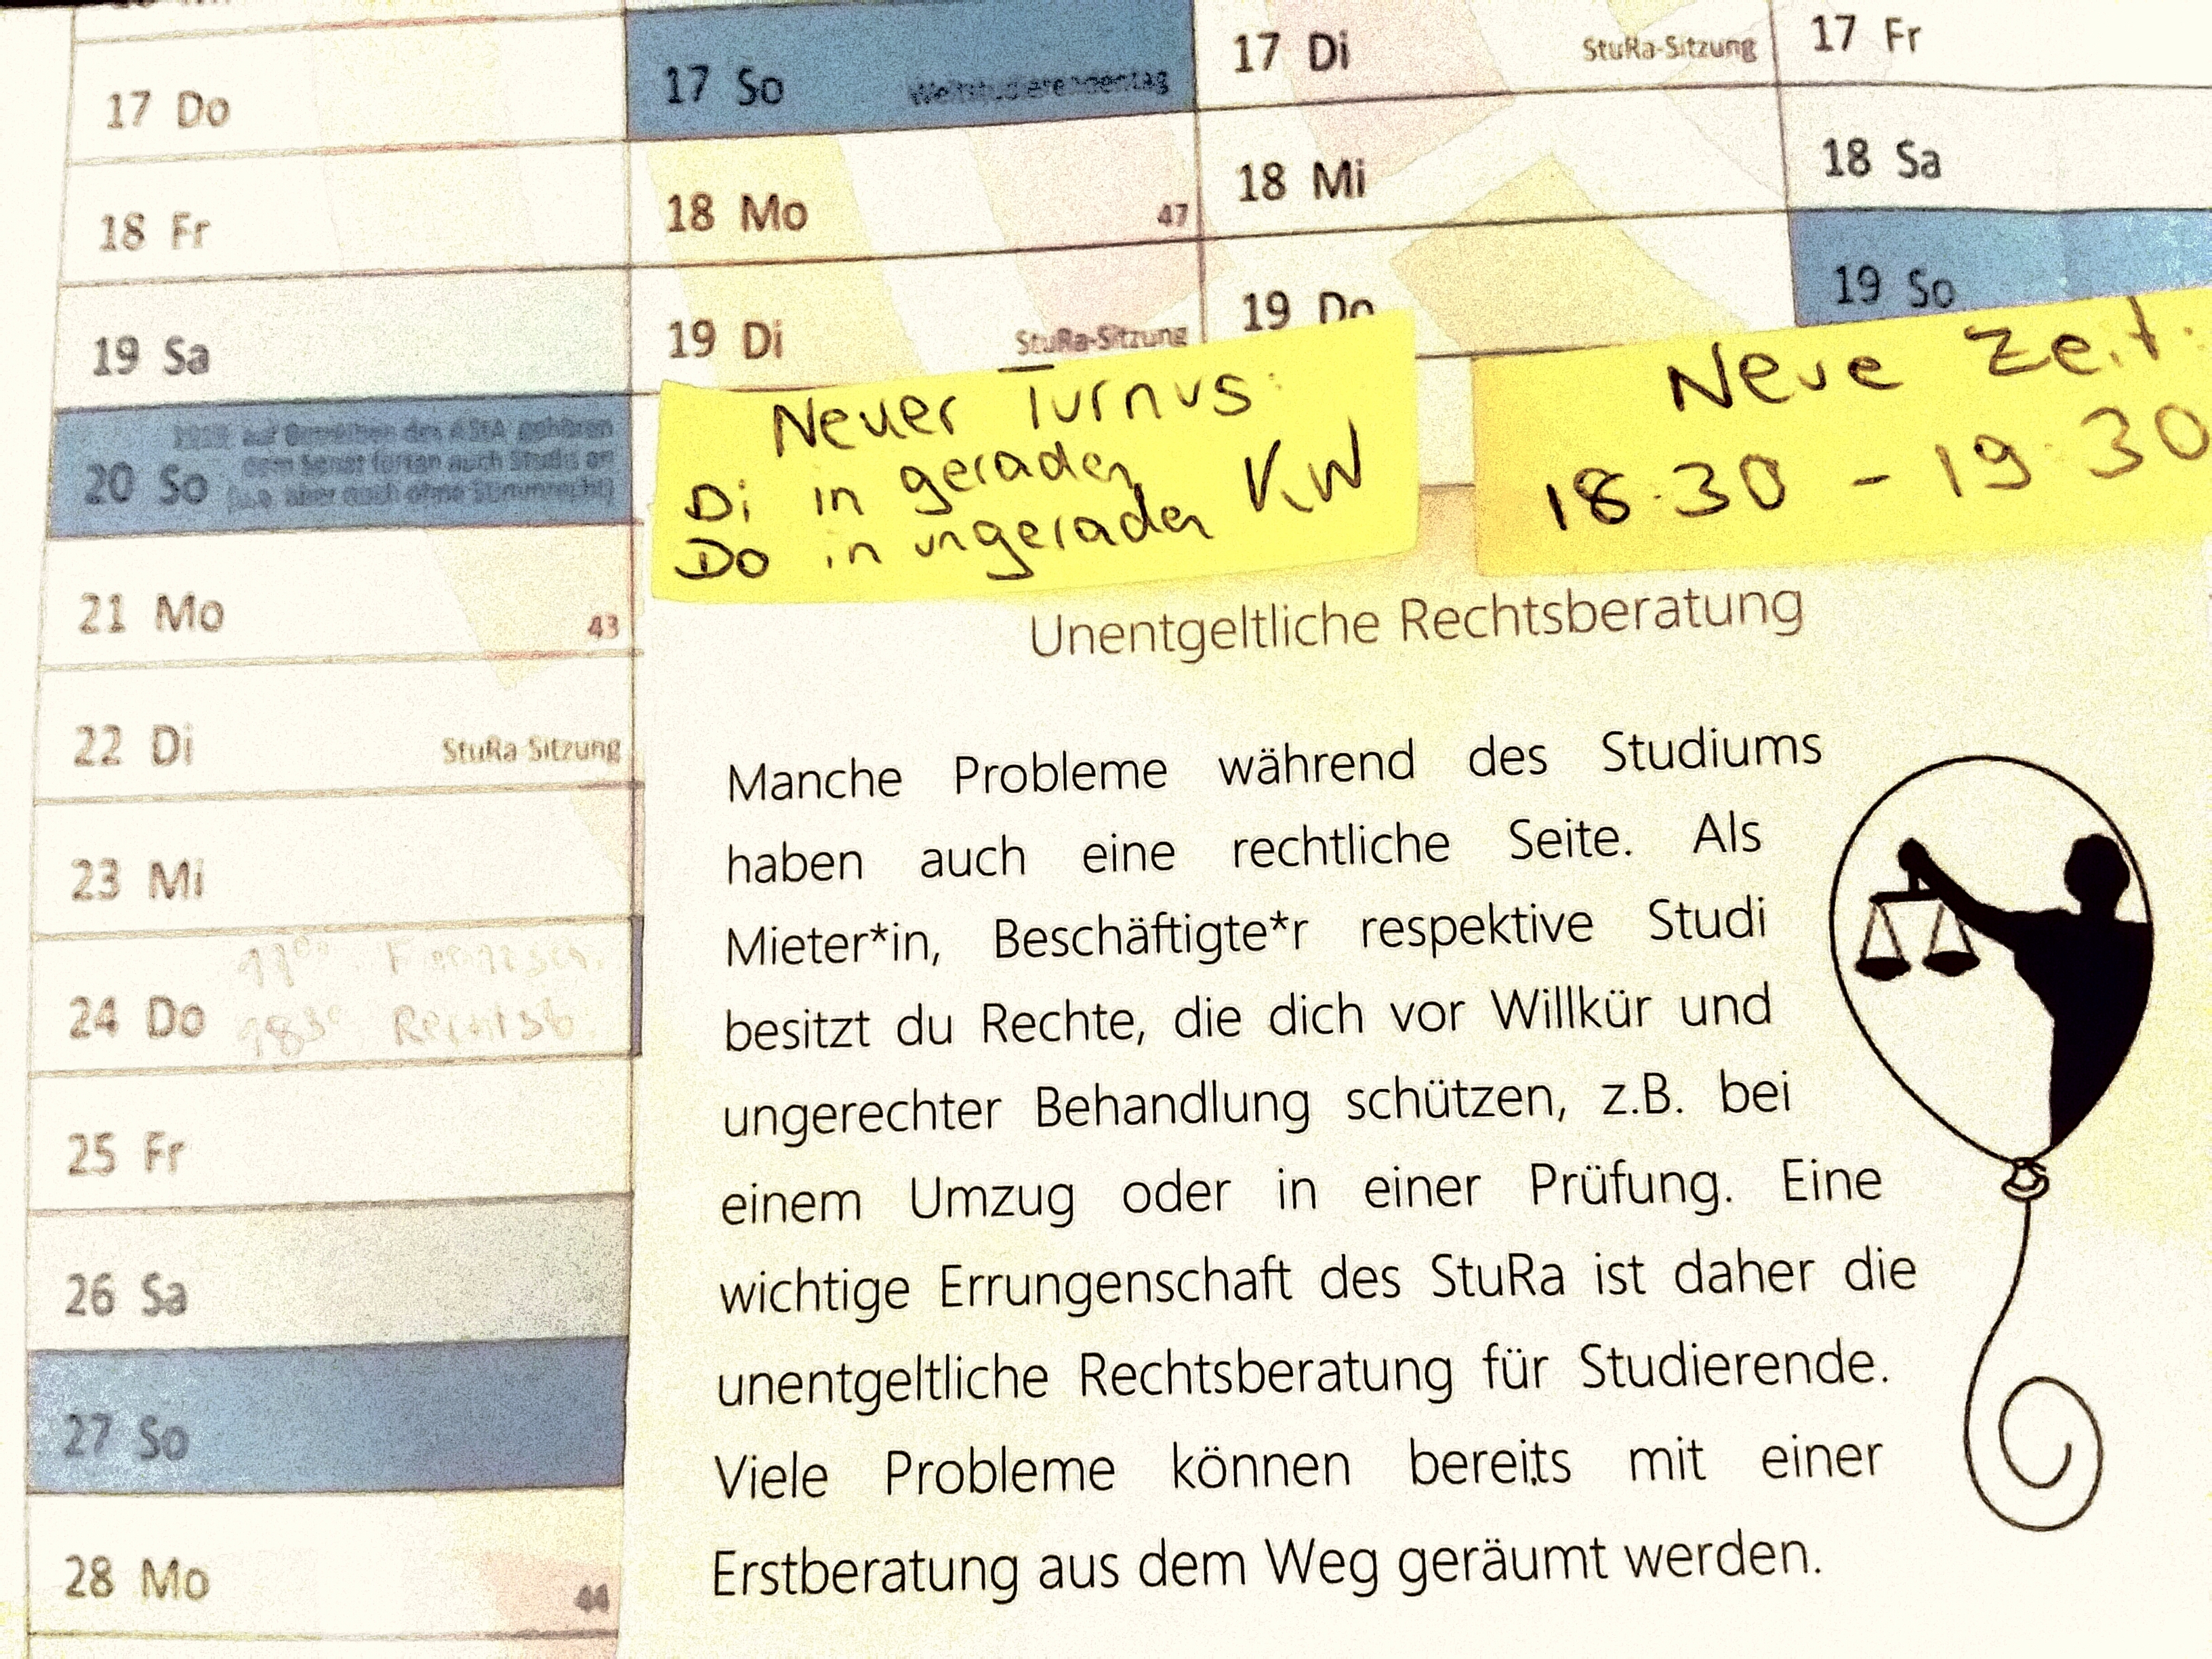 17 Do
18 Fr
19 Sa
1919: auf Betreiben des AStA gehören
dem Senat fortan auch Studis an
aber noch ohne Stimmrecht)
20 So
21 Mo 43
22 Di StuRa-Sitzung
23 Mi
24 Do
18³⁰ Rechtsb.
25 Fr
26 Sa
27 So
28 Mo 44
17 So Weltstudierendentag
18 Mo 47
19 Di StuRa-Sitzung
17 Di StuRa-Sitzung
18 Mi
19 Do
17 Fr
18 Sa
19 So
Neuer Turnus:
Di in geraden KW
Do in ungeraden
Neue Zeit:
18:30 - 19:30
Unentgeltliche Rechtsberatung
Manche Probleme während des Studiums
haben auch eine rechtliche Seite. Als
Mieter*in, Beschäftigte*r respektive Studi
besitzt du Rechte, die dich vor Willkür und
ungerechter Behandlung schützen, z.B. bei
einem Umzug oder in einer Prüfung. Eine
wichtige Errungenschaft des StuRa ist daher die
unentgeltliche Rechtsberatung für Studierende.
Viele Probleme können bereits mit einer
Erstberatung aus dem Weg geräumt werden.